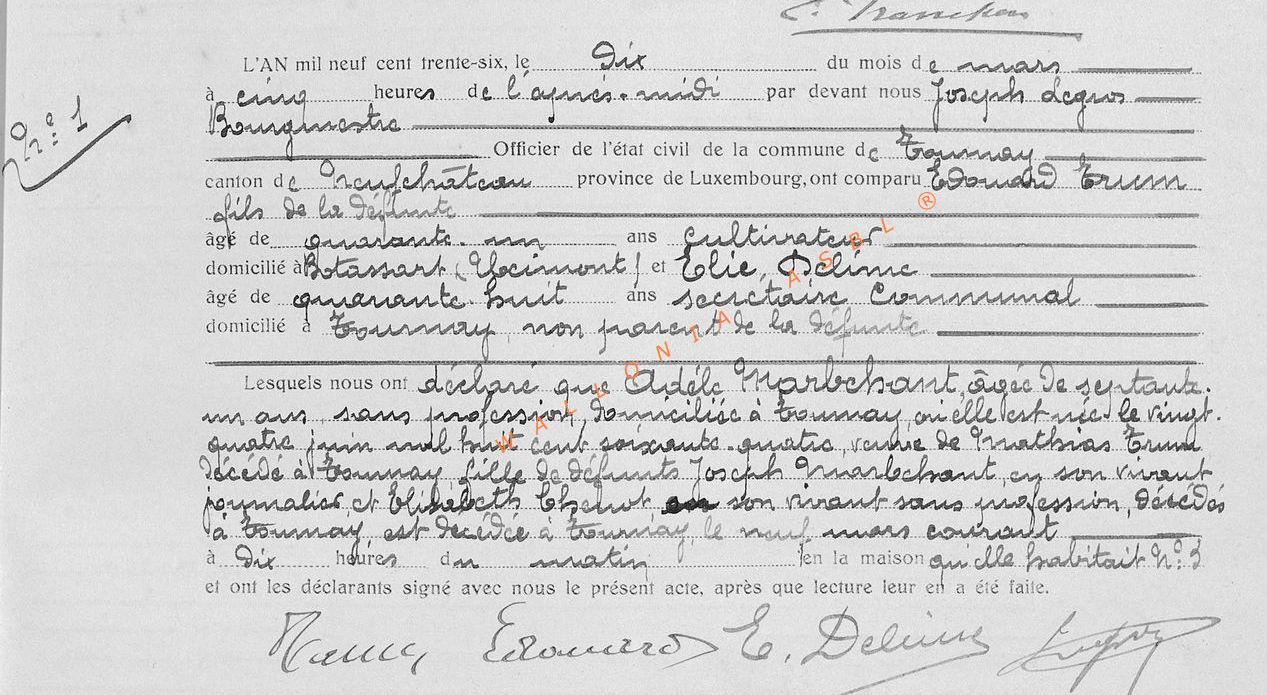 L'AN mil neuf cent trente-six, le dix du mois de mars
à cinq heures de l'après-midi par devant nous Joseph Legros
Bourgmestre
N° 1
Officier de l'état civil de la commune de Tournay
canton de Neufchâteau province de Luxembourg, ont comparu Edouard
fils de la défunte
âgé de quarante-un ans cultivateur
domicilié à Botassart (Ucimont) et Elie, Delime
âgé de quarante huit ans secrétaire Communal
domicilié à Tournay, non parent de la défunte
WALLONIA ASBL ®
Lesquels nous ont déclaré que Adèle Marbehant, âgée de septante-
un ans, sans profession, domiciliée à Tournay, où elle est née le vingt-
quatre juin mil huit cent soixante-quatre, veuve de Mathias
décédé à Tournay, fille de défunts Joseph Marbehant, en son vivant
journalier, et Elisabeth en son vivant sans profession, décédés
à Tournay, est décédée à Tournay, le neuf mars courant
à dix heures du matin en la maison qu'elle habitait N° 3
et ont les déclarants signé avec nous le présent acte, après que lecture leur en a été faite.
Edouard E. Delime